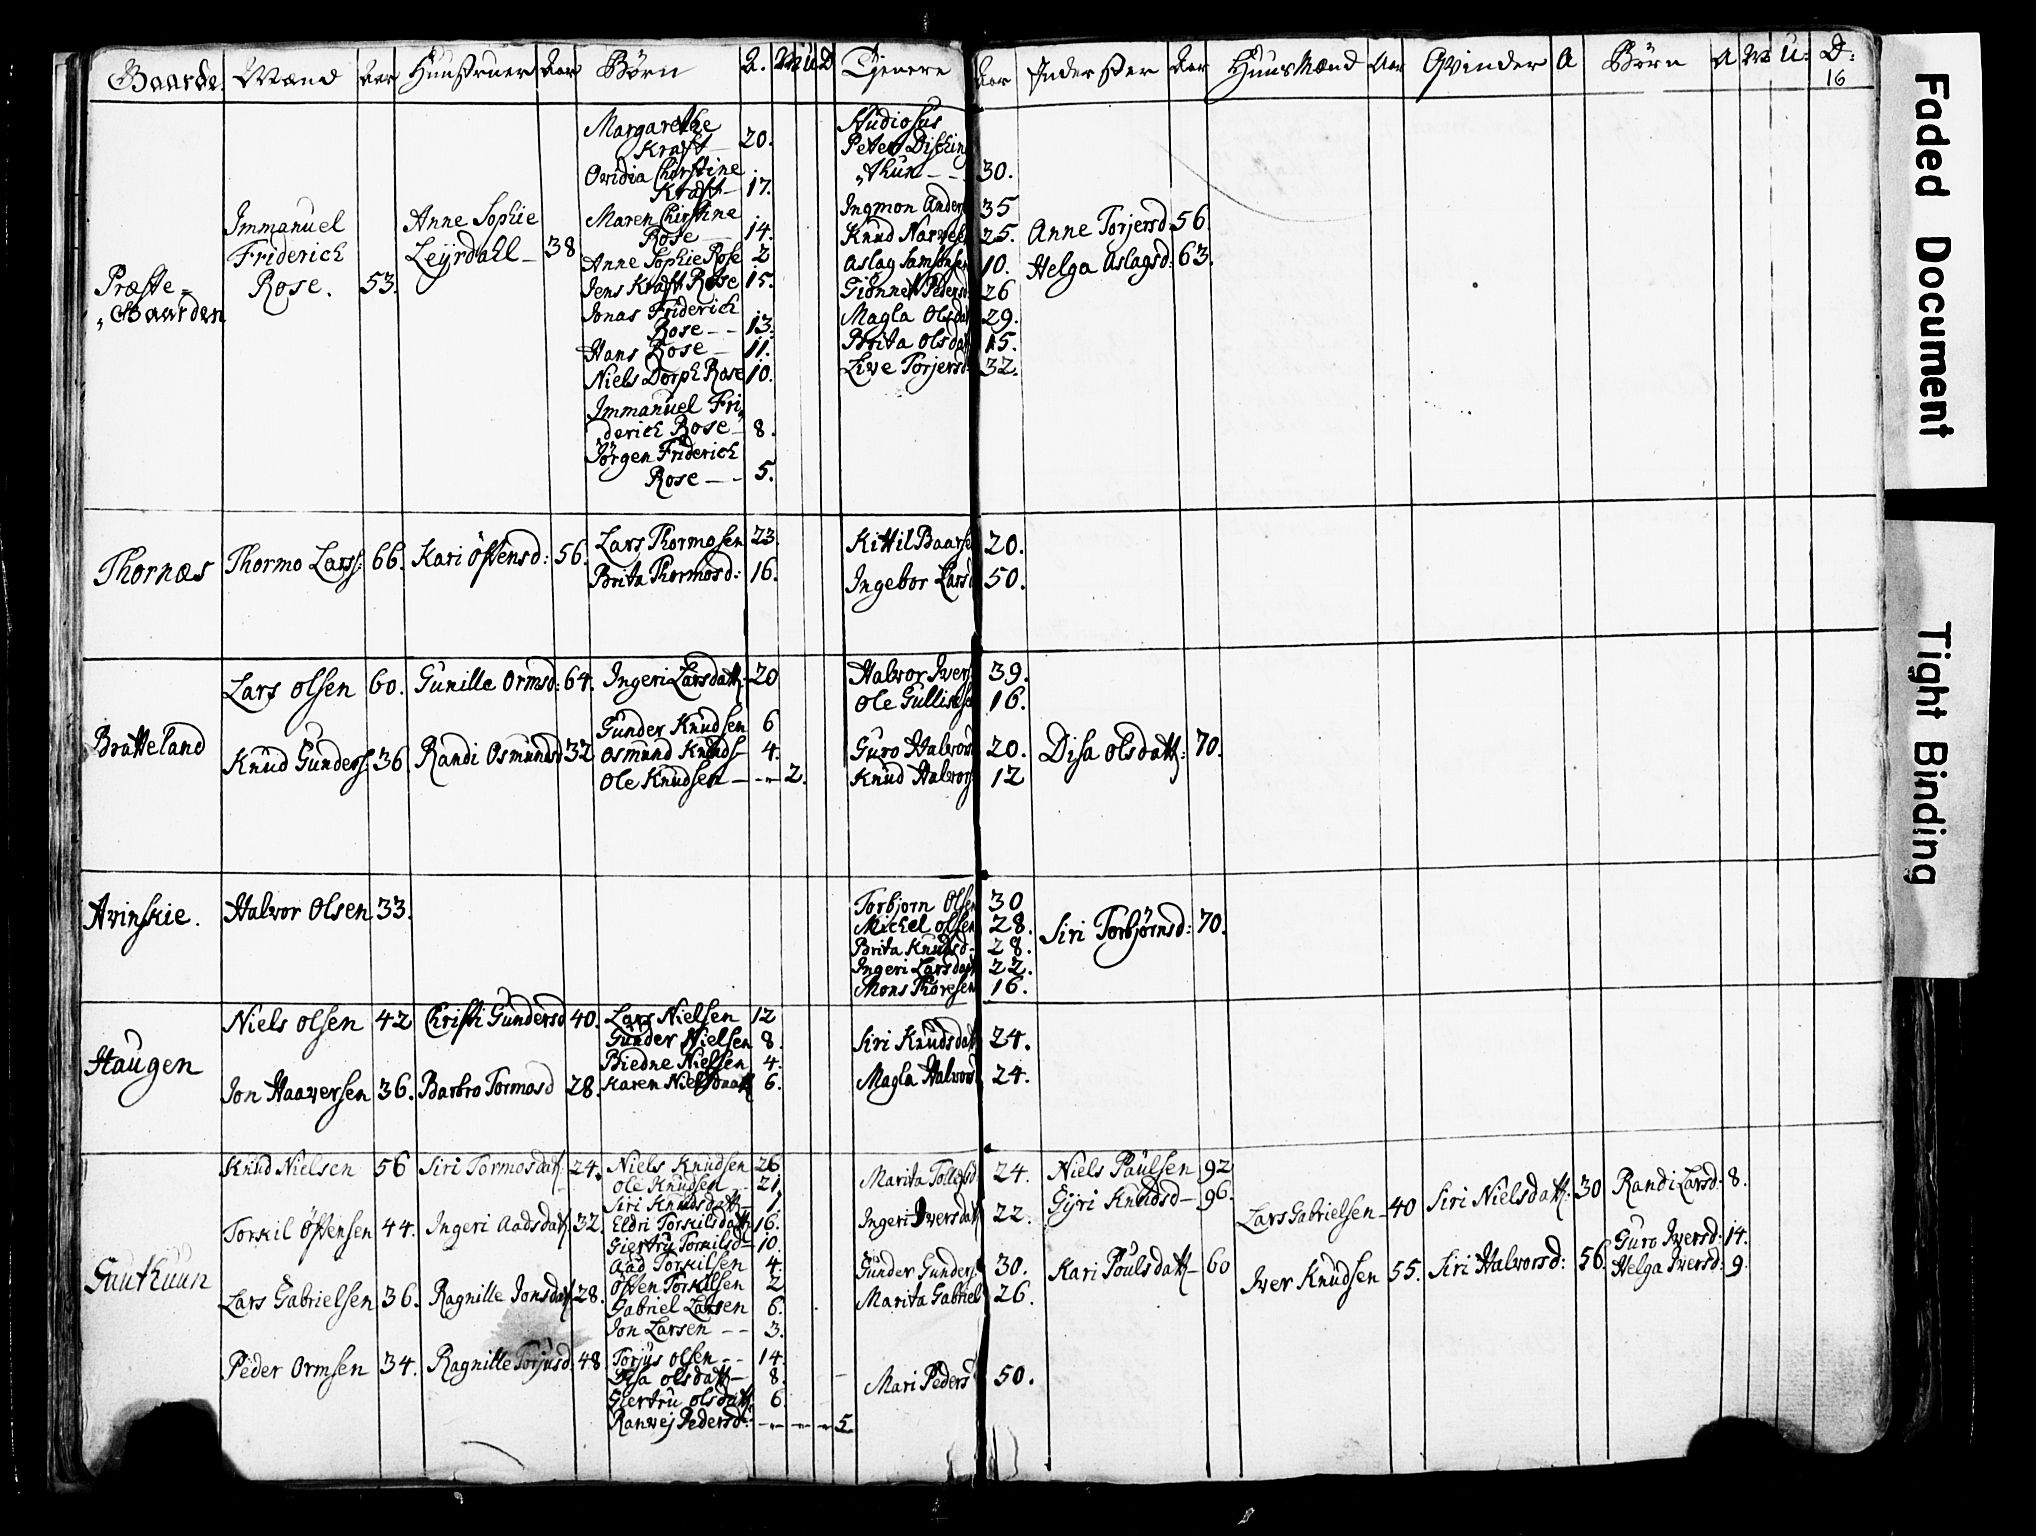 Gaarde Mænd Aar Hunstruer Aar Börn A. M U D Tjenere Aar Inderster Aar HuusMænd Aar Qvinder A Börn A M U: D:
16
Præste-
Gaarden
Immanuel
Friderich
Rose. 53.
Anne Sophie
Leyrdahl - 38
Margarethe
Kraft - 20.
Ovidia Christine
Kraft - 17.
Maren Christine
Rose 14.
Anne Sophie Rose 2
Jens Kraft Rose 15.
Jonas Friderich
Rose - - 13.
Hans Rose - 11.
Niels Dorph Rose 10.
Immanuel Fri
derich Rose - 8.
Jörgen Friderich
Rose - - 5.
Studiosus
Peter
thun - - 30.
Ingmon Anders 35
Knud 25.
Aslag Samsonsen 10.
Peders 26
Magla Olsdat 29.
Brita Olsdat 15.
Live Torjersd 32.
Anne Torjersd. 56.
Helga Aslagsd: 63.
Thornæs
Thormo Larss: 66. Kari Östensd: 56.
Lars Thormosen 23.
Brita Thormosd: 16.
Kittil Baarse 20.
Ingebor Larsd 50.
Bratteland
Lars Olsen 60. Gunille Ormsd: 64. Ingeri Larsdatt: 20
Halvor Ivers 39.
Ole Gulliks 16.
Knud Gunders: 36. Randi Osmunsd 32
Gunder Knudsen 6
Osmund Knuds 4.
Ole Knudsen - - - 2.
Guro Halvors 20.
Knud Halvors 12
Disa Olsdatt: 70.
Avinskie.
Halvor Olsen 33.
Torbjorn Olsen 30
Michel Olsen 28.
Brita Knudsd- 28.
Ingeri Larsdatt 22.
Mons Thoresen 16.
Siri Torbjörnsd: 70.
Haugen
Niels Olsen 42 Christi Gundersd 40.
Lars Nielsen 12
Gunder Nielsen 8.
Biedne Nielsen 4.
Karen Nielsdaatt 6.
Jon Haaversen 36. Barbro Tormosd 28.
Siri Knudsdatt 24.
Magla Halvors 24.
Guuthuun
Knud Nielsen 56 Siri Tormosdatt: 24.
Niels Knudsen 26
Ole Knudsen - 21.
Siri Knudsdatt - 1.
Torkil Östensen 44. Ingeri Aadsdatt 32.
Eldri Torkilsdatt 16.
Giertru Torkilsd- 10.
Aad Torkilsen 4.
Östen Torkilsen 2
Lars Gabrielsen 36. Ragnille Jonsdatt 28.
Gabriel Larsen 6.
Jon Larsen - - 3.
Peder Ormsen 34. Ragnille Torjusd 48.
Torjus Olsen - - 14.
Disa Olsdatt - 8.
Giertru Olsdatt 6.
Ranvej Pedersdt: - - - - 5
Marita Tollefsd 24.
Ingeri Iversdatt 22.
Gunder Gunders 30.
Marita Gabriel 26.
Mari Peders 50.
Niels Paulsen 92
Gyri Knudsd- 96.
Kari Poulsdatt- 60
Lars Gabrielsen - 40 Siri Nielsdatt: 30 Randi Larsd: 8.
Iver Knudsen 55. Siri Halvorsd: 56.
Guro Iversd: 14.
Helga Iversd: 9.
Faded Document
Tight Binding